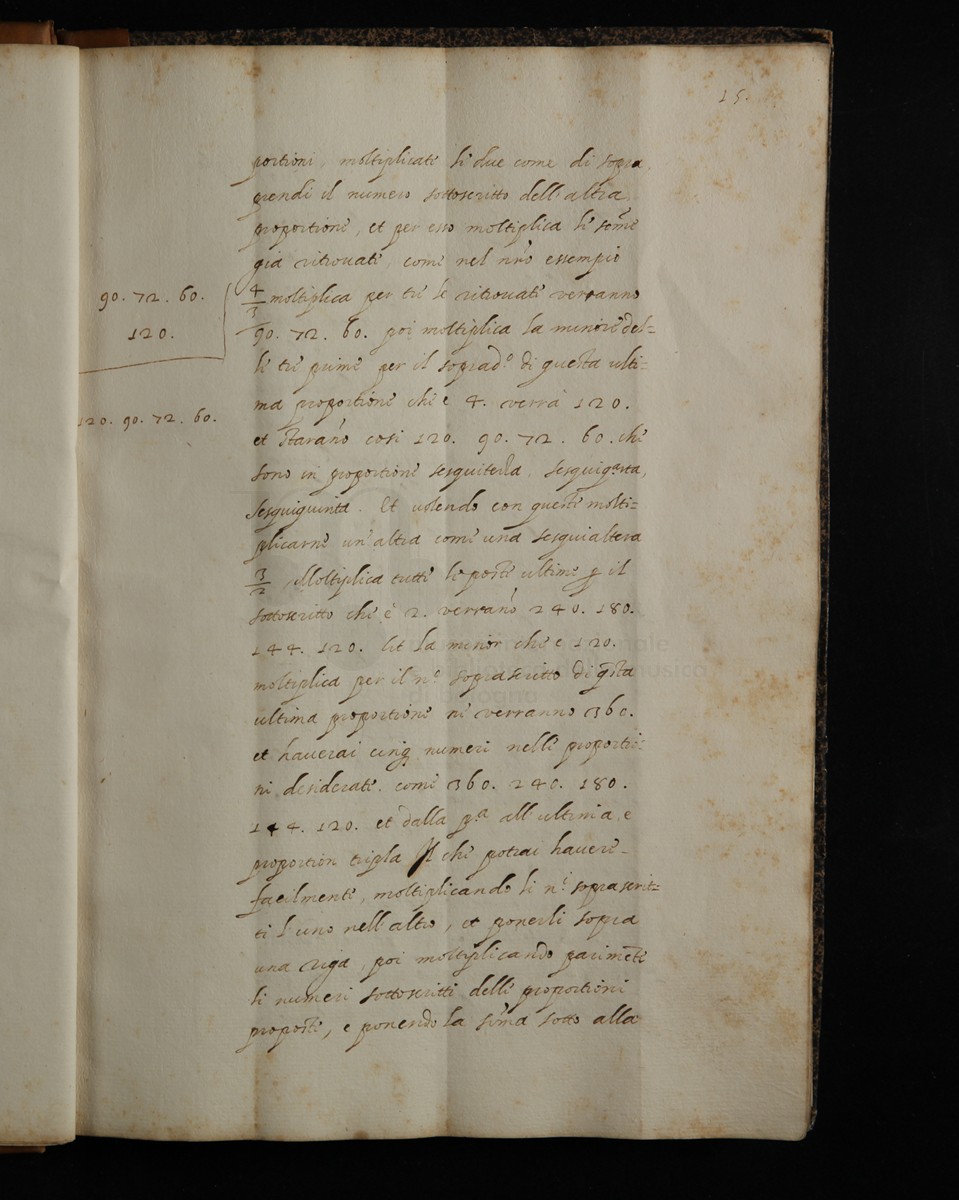 15.
portioni, moltiplicati li due come di sopra,
prendi il numero sottoscritto dell'altra
proportione, et per esso moltiplica li som̃e
gia ritrouati, come nel nr̃o essempio
4/3 moltiplica per trè le ritrouati verranno
90. 72. 60. poi moltiplica la minore del=
li trè prime per il soprad.º di questa ulti=
ma proportione che è 4. verrà 120.
et starañо cosi 120. 90. 72. 60. che
sono in proportione sesquiterza, sesquiq.ᵃrta,
sesquiquinta. Et uolendo con queste molti=
plicarne un'altra come una sesquialtera
3/2 Moltiplica tutte le poste ultime ꝑ il
sottoscritto che è 2. verrañо 240. 180.
144. 120. Et la minor che è 120.
moltiplica per il n.º soprascritto di q̃sta
ultima proportione ne verranno 360.
et hauerai cinq̃ numeri nelle proportio=
ni desiderate. come 360. 240. 180.
144. 120. et dalla p.ª all'ultima, e
proportion tripla Il che potrai hauere
facilmente, moltiplicando li n.ⁱ soprascrit=
ti l'uno nell'altro, et ponerli sopra
una riga, poi moltiplicando parimẽte
li numeri sottoscritti delle proportioni
proposte, e ponendo la som̃a sotto alla
90. 72. 60.
120.
120. 90. 72. 60.